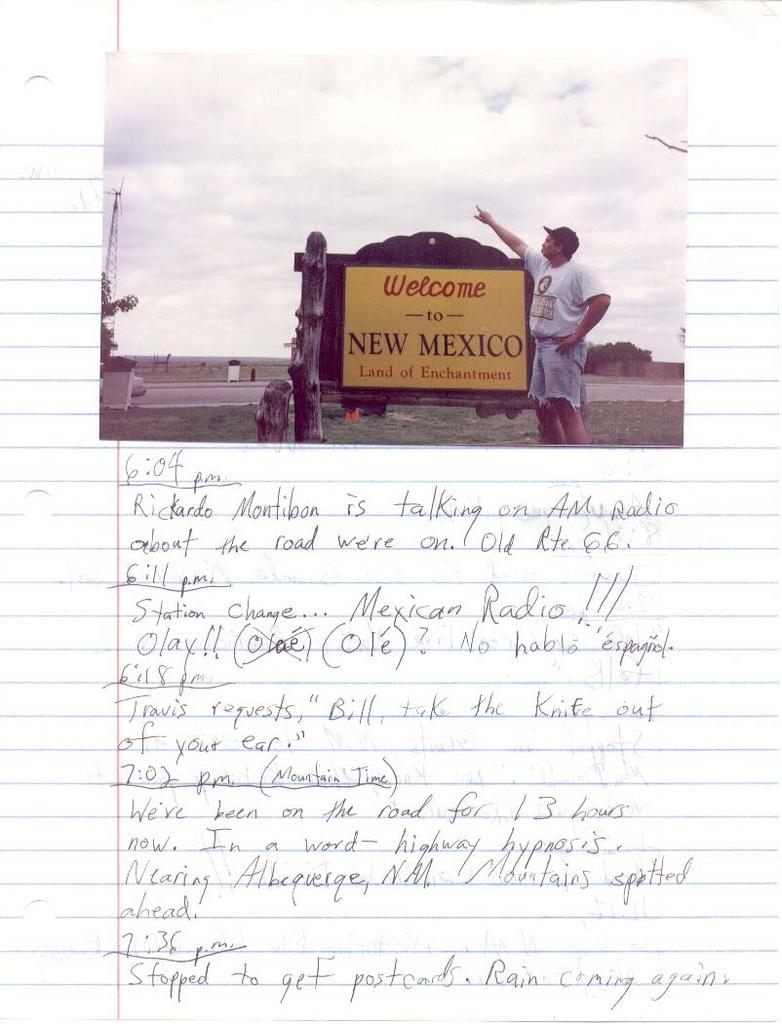 Welcome
— to —
NEW MEXICO
Land of Enchantment
6:04 p.m.
Rickardo Montibon is talking on AM Radio
about the road we're on. Old Rte 66.
6:11 p.m.
Station change... Mexican Radio!!!
Olay!! (Olaé) (Olé)? No hablo español.
6:18 p.m.
Travis requests, "Bill, take the Knife out
of your ear."
7:02 p.m. (Mountain Time)
We've been on the road for 13 hours
now. In a word – highway hypnosis.
Nearing Albequerqe, N.M. Mountains spotted
ahead.
7:36 p.m.
Stopped to get postcards. Rain coming again.